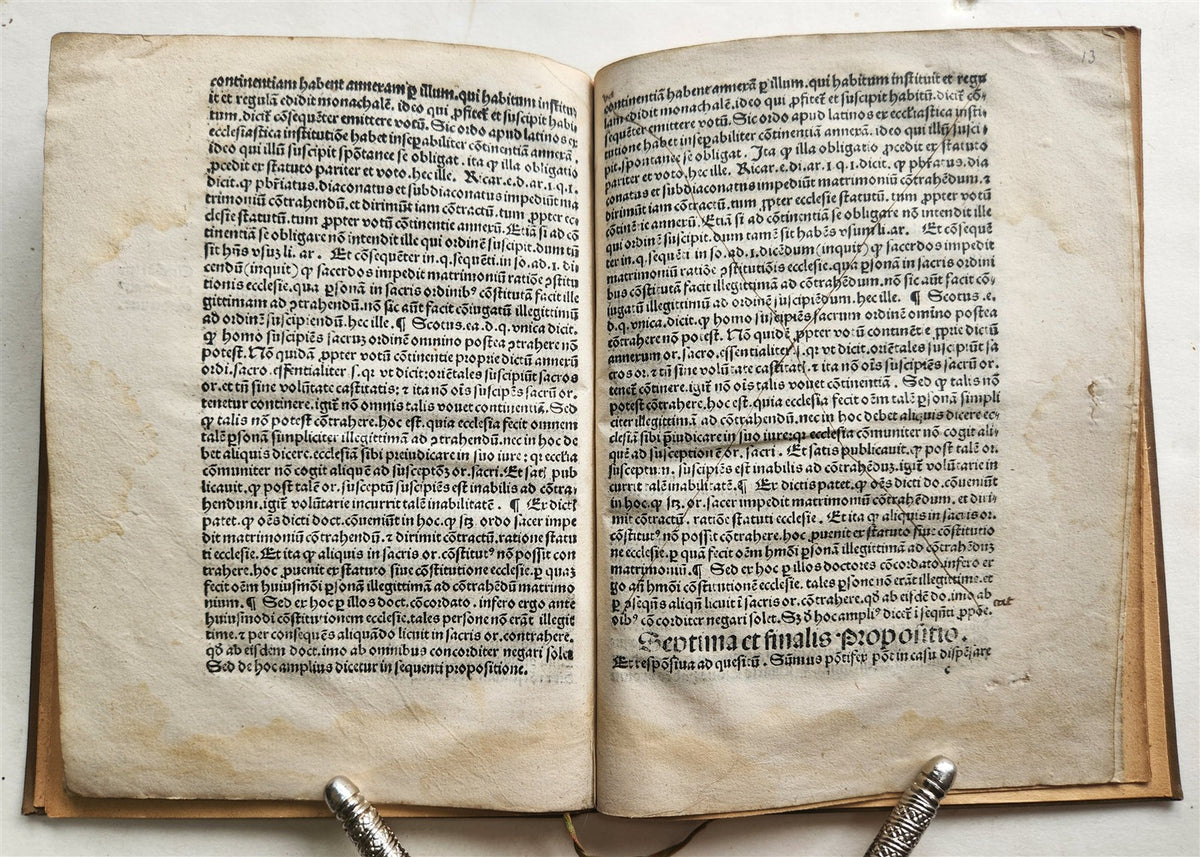 continentiam habent annexam ꝑ illum. qui habitum instituit
it et regulā edidit monachalē. ideo qui ꝓfitet᷑ et suscipit habi
tum. dicit᷑ cōsequēter emittere votū. Sic ordo apud latinos ex
ecclesiastica institutiōe habet insepabiliter cōtinentiā annexā.
ideo qui illū suscipit spōtanee se obligat. ita ꝙ illa obligatio
ꝓcedit ex statuto pariter et voto. hec ille. Ricar. e. d. ar. 1. q. 1.
dicit. ꝙ pbr̄iatus. diaconatus et subdiaconatus impediūt ma
trimoniū cōtrahendū. et dirimūt iam cōtractū. tum ꝓpter ec⸗
clesie statutū. tum ꝓpter votū cōtinentie annexū. Etiā si ad cō
tinentiā se obligare nō intendit ille qui ordinē suscipit. dum tn̄
sit hn̄s vsuʒ li. ar. Et cōsequēter in. q. sequēti. in so. ad. 1. di
cendū (inquit) ꝙ sacerdos impedit matrimoniū ratiōe ꝯstitu
tionis ecclesie. qua ꝑsonā in sacris ordinibꝰ cōstitutā facit ille
gittimam ad ꝯtrahendū. nō sic aūt facit cōiugatū illegittimū
ad ordinē suscipiendū. hec ille. ¶ Scotus. ea. d. q. vnica dicit.
ꝙ homo suscipiēs sacruʒ ordinē omnino postea ꝯtrahere nō
potest. Nō quidā ꝓpter votū cōtinentie proprie dictū annexū
ordi. sacro. essentialiter .s. qꝛ vt dicit: oriētales suscipiūt sacros
or. et tn̄ sine volūtate castitatis: ⁊ ita nō oīs suscipiēs sacrū or.
tenetur continere. igit᷑ nō omnis talis vouet continentiā. Sed
ꝙ talis nō potest cōtrahere. hoc est. quia ecclesia fecit omnem
talē ꝑsonā simpliciter illegittimā ad ꝯtrahendū. nec in hoc de
bet aliquis dicere. ecclesiā sibi preiudicare in suo iure: qꝛ ecclīa
cōmuniter nō cogit aliquē ad susceptōꝫ or. sacri. Et satꝭ pub
licauit. ꝙ post talē or. susceptū suscipiēs est inabilis ad cōtra⸗
hendum. igit᷑ volūtarie incurrit talē inabilitatē. ¶ Ex dictꝭ
patet. ꝙ oēs dicti doct. cōueniūt in hoc. ꝙ sꝫ ordo sacer impe
dit matrimoniū cōtrahendū. ⁊ dirimit cōtractū. ratione statu
ti ecclesie. Et ita ꝙ aliquis in sacris or. cōstitutꝰ nō possit con
trahere. hoc ꝓuenit ex statuto siue cōstitutione ecclesie. ꝑ quaʒ
fecit oēm huiusmōi ꝑsonā illegittimā ad cōtrahēdū matrimo
nium. ¶ Sed ex hoc ꝑ illos doct. cōcordato. infero ergo ante
huiusmodi constitutionem ecclesie. tales persone nō erāt illegit
time. ⁊ per consequēs aliquādo licuit in sacris or. contrahere.
qd̄ ab eisdem doct. imo ab omnibus concorditer negari solet.
Sed de hoc amplius dicetur in sequenti propositione.
13
continentiā habent annexā ꝑ illum. qui habitum instituit et regu
lam edidit monachalē. ideo qui ꝓfitet᷑ et suscipit habitū. dicit᷑ cō⸗
sequēter emittere votū. Sic ordo apud latinos ex ecclīastica insti⸗
tutione habet insepabiliter cōtinentiā annexā. ideo qui illū susci⸗
pit. spontanee se obligat. Ita ꝙ illa obligatio ꝓcedit ex statuto
pariter et voto. hec ille. Ricar. e. di. ar. 1. q. 1. dicit. ꝙ pbr̄atus. dia
conatus et subdiaconatus impediūt matrimoniū cōtrahēdum. ⁊
dirimūt iam cōtractū. tum ꝓpter ecclesie statutū. tum ꝓpter votū
cōtinētie annexū. Etiā si ad cōtinentiā se obligare nō intendit ille
qui ordinē suscipit. dum tamē sit habēs vsum li. ar. Et cōsequē
ter in. q. sequēti in so. ad. 1. dicēdum (inquit) ꝙ sacerdos impedit
matrimoniū ratiōe ꝯstitutiōis ecclesie. qua ꝑsonā in sacris ordini
bus cōstitutā facit illegittimā ad cōtrahēdum. nō sic aūt facit cō⸗
iugatū illegittimū ad ordinē suscipiēdum. hec ille. ¶ Scotus. e.
d. q. vnica. dicit. ꝙ homo suscipiēs sacrum ordinē omīno postea
cōtrahere nō potest. Nō quidē ꝓpter votū continētie ꝓprie dictū
annexum or. sacro. essentialiter .s. qꝛ vt dicit. oriētales suscipiūt sa
cros or. ⁊ tn̄ sine volūtate castitatꝭ. ⁊ ita nō oīs suscipiēs sacrū or.
tenet᷑ cōtinere. igit᷑ nō oīs talis vouet continentiā. Sed ꝙ talis nō
potest cōtrahere. hoc est. quia ecclesia fecit oēm talē ꝑsonā simpli
citer illegittimā ad cōtrahendū. nec in hoc debet aliquis dicere ec⸗
clesiā sibi p̄iudicare in suo iure: qꝛ ecclesia cōmuniter nō cogit ali⸗
quē ad susceptionē or. sacri. Et satis publicauit. ꝙ post talē or.
susceptum. suscipiēs est inabilis ad cōtrahēduʒ. igit᷑ volūtarie in
currit talē inabilitatē. ¶ Ex dictis patet. ꝙ oēs dicti do. cōueniūt
in hoc. ꝙ sꝫ. or. sacer impedit matrimoniū cōtrahēdum. et diri⸗
mit cōtractū. ratiōe statuti ecclesie. Et ita ꝙ aliquis in sacris or.
cōstitutꝰ nō possit cōtrahere. hoc ꝓuenit ex statuto siue cōstitutio
ne ecclesie. ꝑ quā fecit oēm hmōi ꝑsonā illegittimā ad cōtrahēduʒ
matrimoniū. ¶ Sed ex hoc ꝑ illos doctores cōcordato. infero er
go an̄ hmōi cōstitutionē ecclesie. tales ꝑsone nō erāt illegittime. et
ꝑ ꝯseqn̄s aliqn̄ licuit ī sacris or. cōtrahere. qd̄ ab eisdē do. imo ab
oībꝰ cōcorditer negari solet. Sꝫ d̄ hoc ampliꝰ dicet᷑ ī seqn̄ti ꝓpōe.
Septima et finalis Propositio.
Et respōsiua ad quesitū. Sūmus pōtifex pōt in casu dispēsare